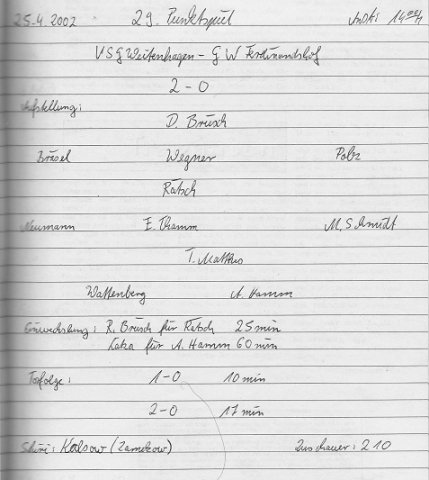 25.4.2002 29. Punktspiel Anstoß 14 00 h
VSG Weitenhagen - G W Ferdinandshof
2 - 0
Aufstellung:
D. Brüsch
Bräsel Wegner Polz
Rätsch
Neumann E. Thamm M. Schmidt
T. Matthus
Wattenberg A. Hamm
Einwechslung: R. Brüsch für Rätsch 25 min
für A. Hamm 60 min
Torfolge: 1-0 10 min
2-0 17 min
Schiri: Kalsow (Zarnekow) Zuschauer: 210